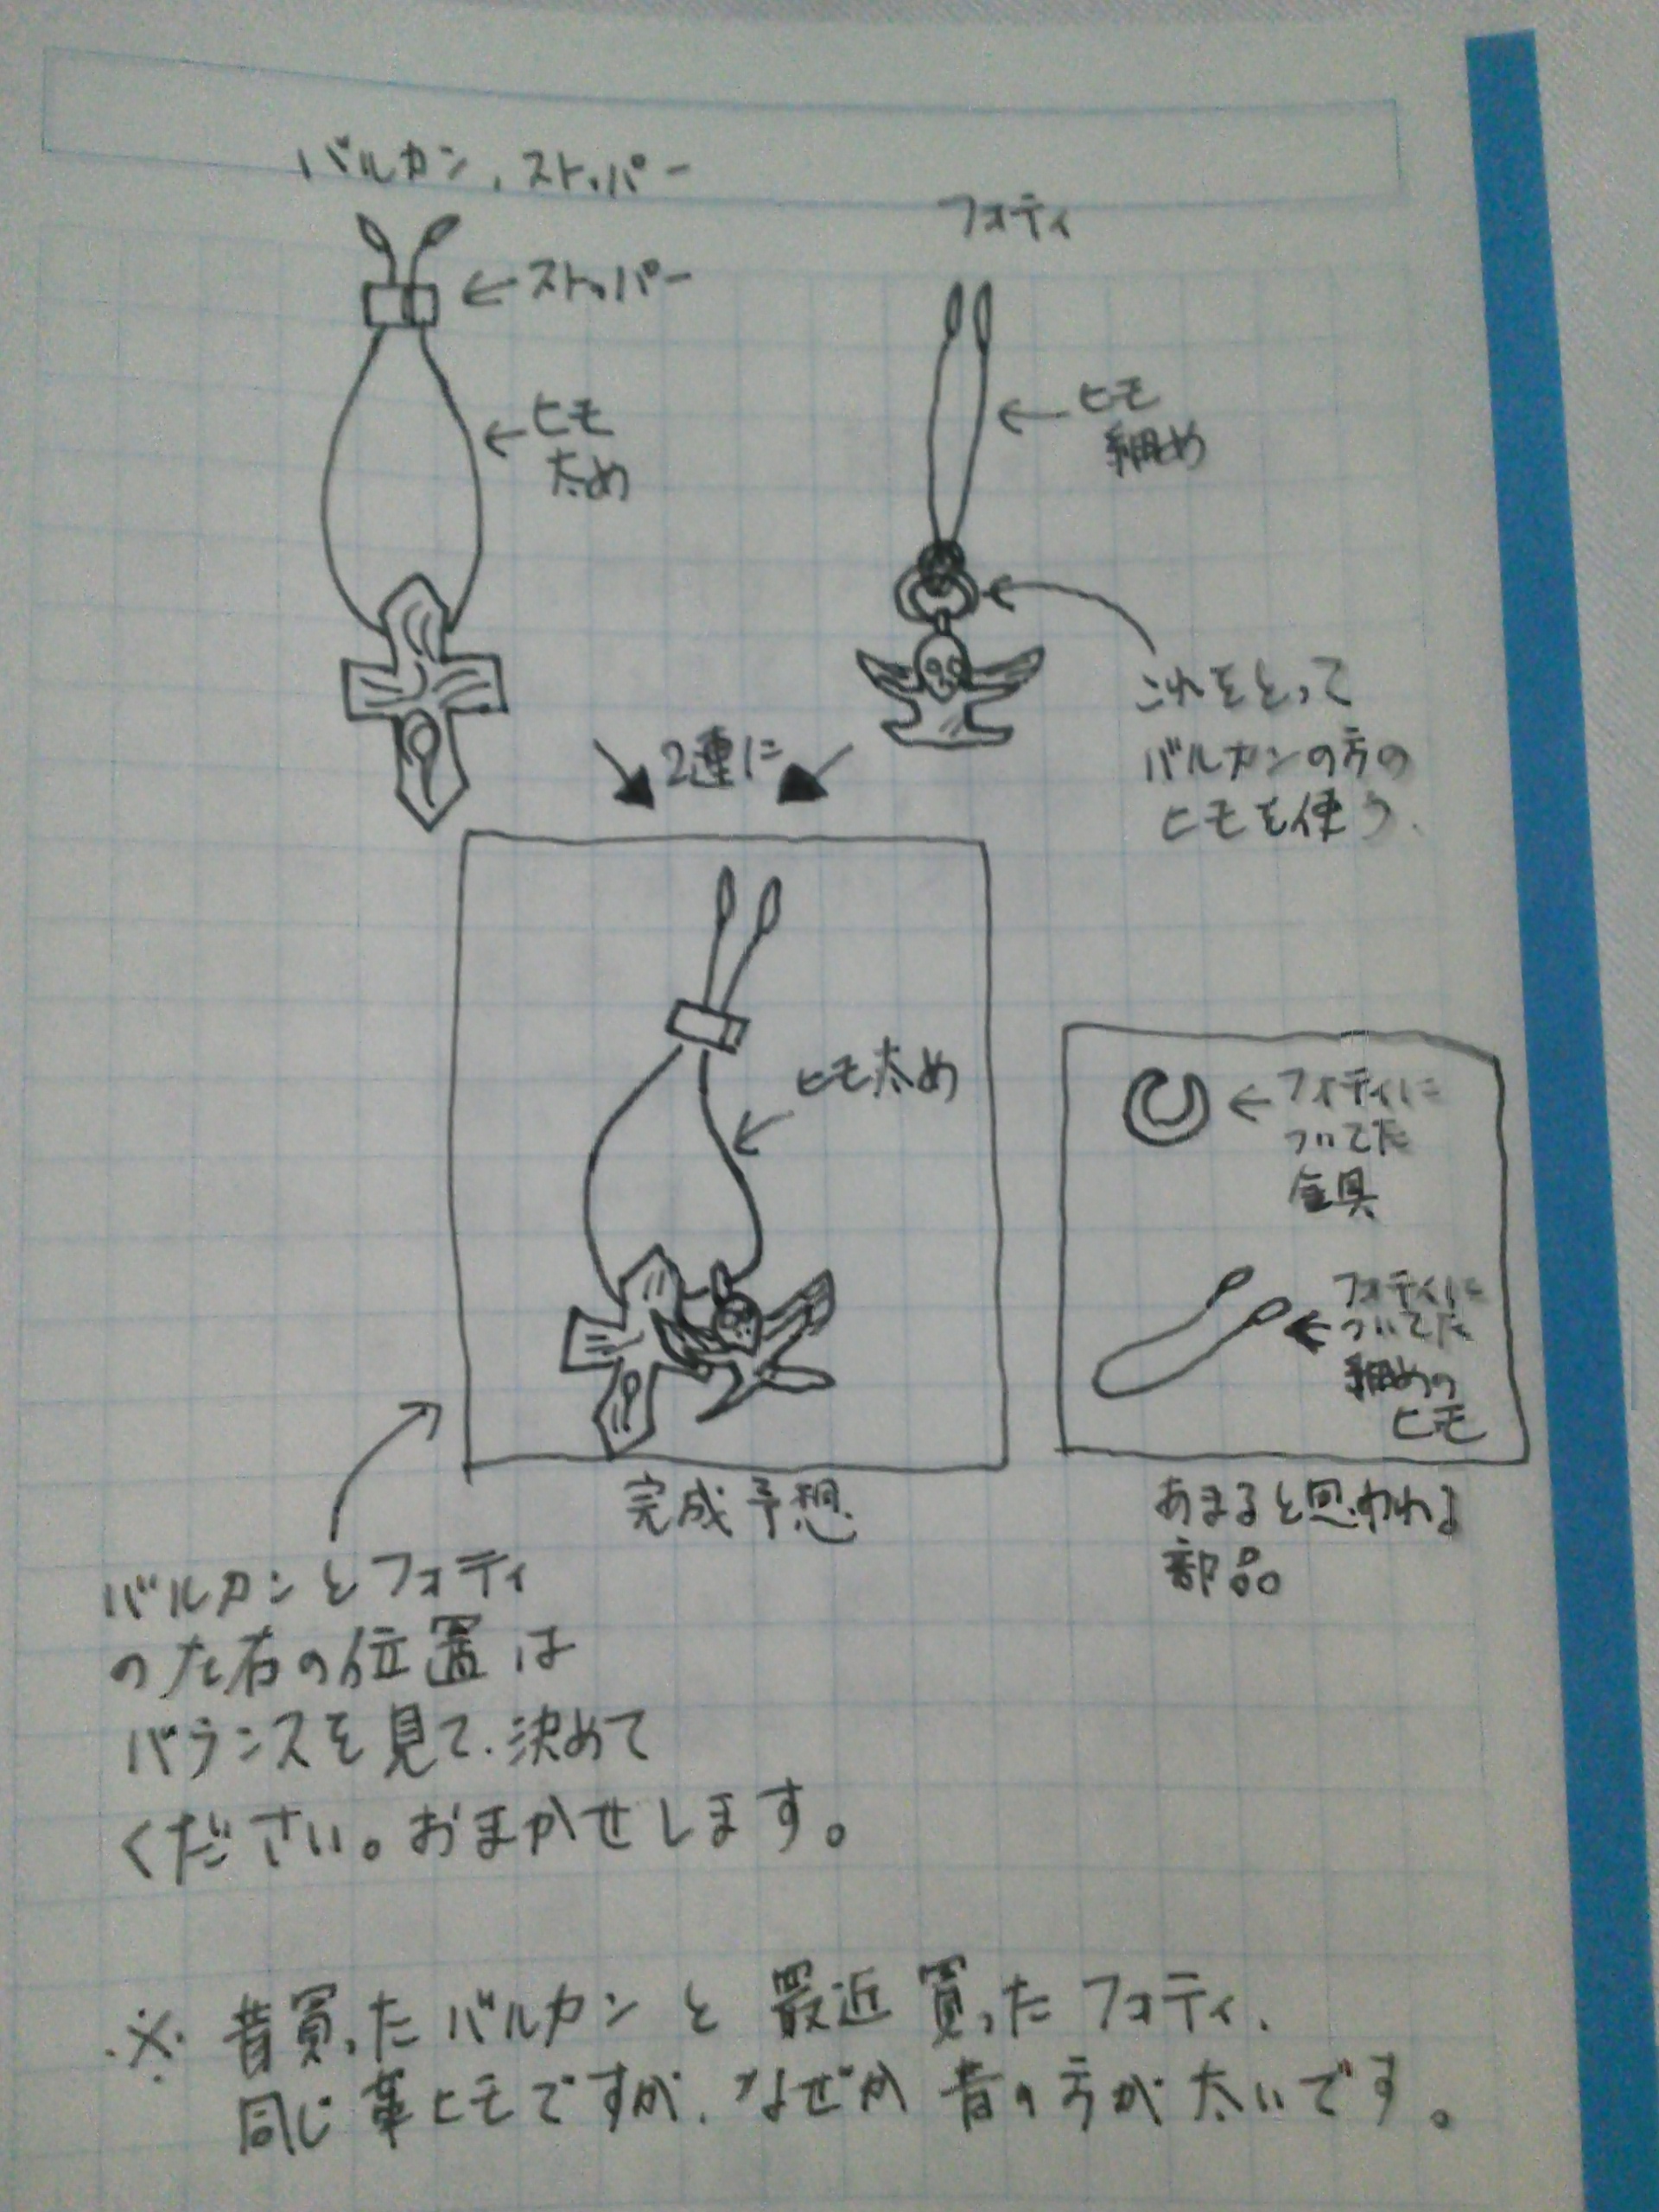 バルカン、ストッパー
フォティ
ストッパー
ヒモ
太め
ヒモ
細め
これをとって
バルカンの方の
ヒモを使う.
2連に
ヒモ太め
フォティに
ついてた
金具
フォティに
ついてた
細めの
ヒモ
完成予想
あまると思われる
部品
バルカンとフォティ
の左右の位置は
バランスを見て、決めて
ください。おまかせします。
※ 昔買ったバルカンと最近買ったフォティ、
同じ革ヒモですが、なぜか昔の方が太いです。